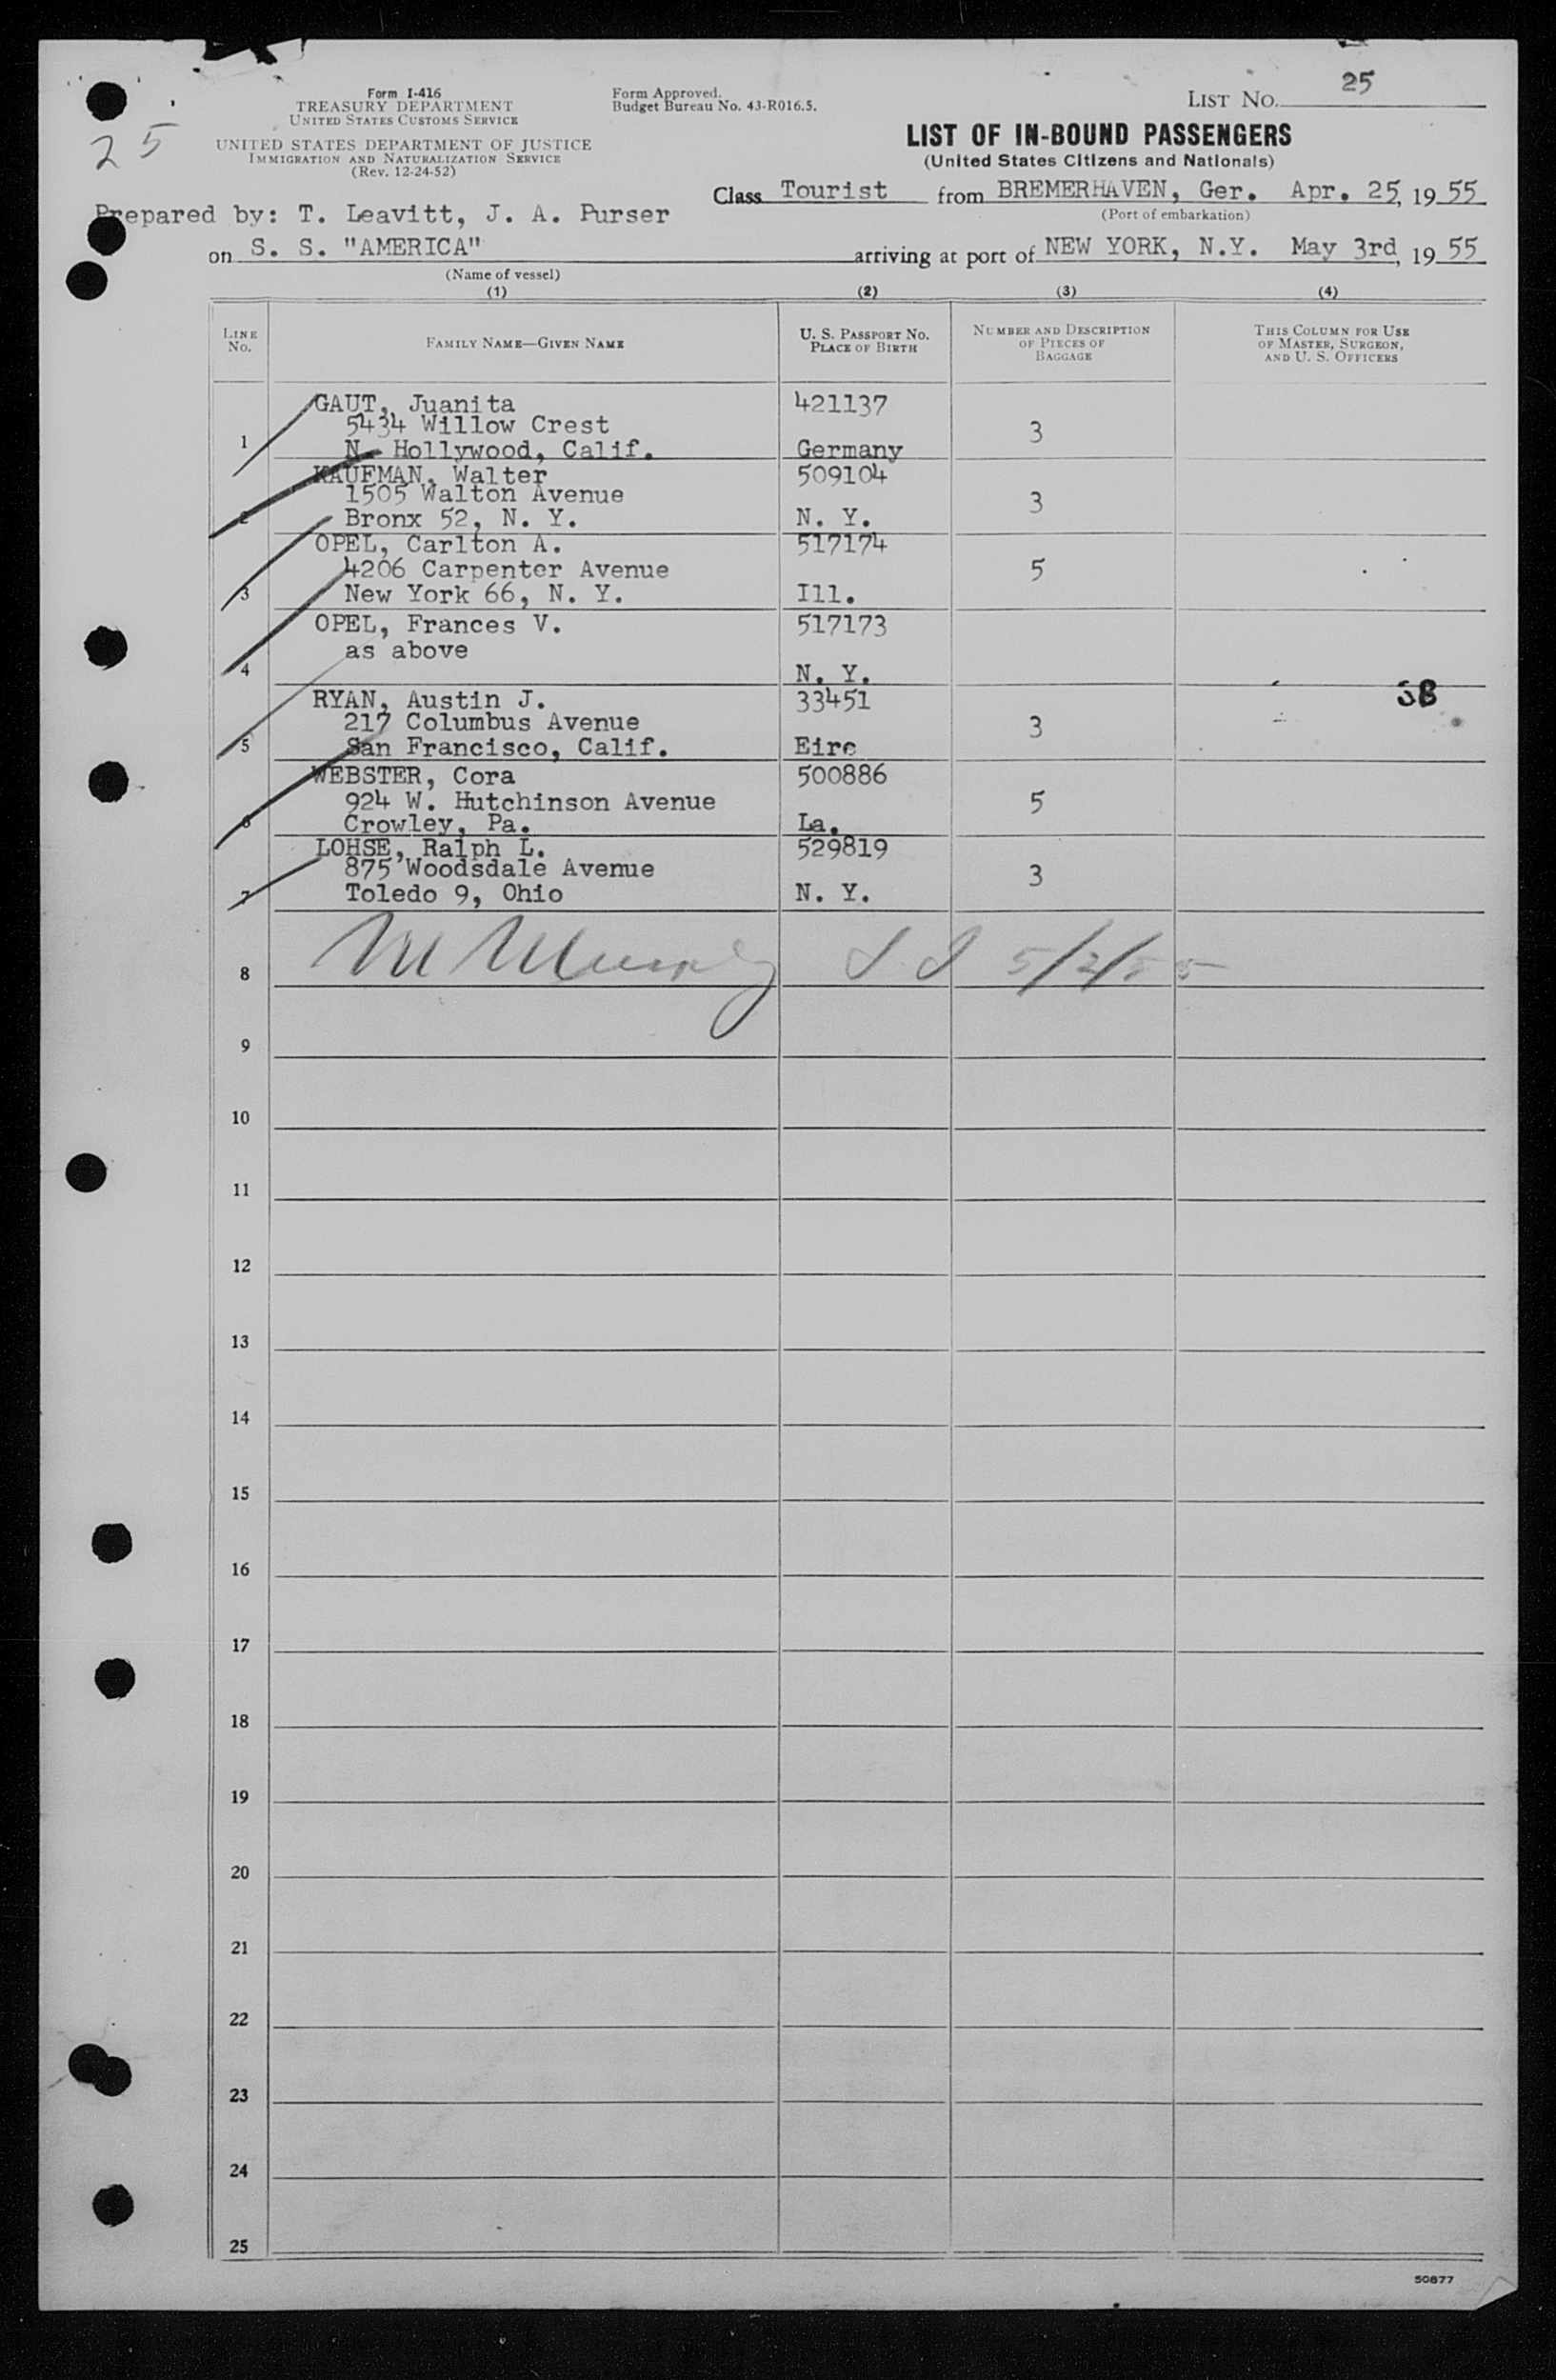 25
Form I-416
TREASURY DEPARTMENT
UNITED STATES CUSTOMS SERVICE
UNITED STATES DEPARTMENT OF JUSTICE
IMMIGRATION AND NATURALIZATION SERVICE
(Rev. 12-24-52)
Form Approved.
Budget Bureau No. 43-R016.5.
LIST NO. 25
LIST OF IN-BOUND PASSENGERS
(United States Citizens and Nationals)
Class Tourist from BREMERHAVEN, Ger. Apr. 25, 1955
(Port of embarkation)
Prepared by: T. Leavitt, J. A. Purser
on S. S. "AMERICA" arriving at port of NEW YORK, N.Y. May 3rd, 1955
(Name of vessel)
(1) (2) (3) (4)
LINE NO.
FAMILY NAME—GIVEN NAME
U. S. PASSPORT NO.
PLACE OF BIRTH
NUMBER AND DESCRIPTION
OF PIECES OF
BAGGAGE
THIS COLUMN FOR USE
OF MASTER, SURGEON,
AND U. S. OFFICERS
GAUT, Juanita 421137
5434 Willow Crest
1 N. Hollywood, Calif. Germany 3
KAUFMAN, Walter 509104
1505 Walton Avenue 3
2 Bronx 52, N. Y. N. Y.
OPEL, Carlton A. 517174
4206 Carpenter Avenue 5
3 New York 66, N. Y. Ill.
OPEL, Frances V. 517173
as above
4 N. Y.
RYAN, Austin J. 33451
217 Columbus Avenue 3
5 San Francisco, Calif. Eire
WEBSTER, Cora 500886
924 W. Hutchinson Avenue 5
6 Crowley, Pa. La.
LOHSE, Ralph L. 529819
875 Woodsdale Avenue 3
7 Toledo 9, Ohio N. Y.
8 5/2/55
9
10
11
12
13
14
15
16
17
18
19
20
21
22
23
24
25
50877